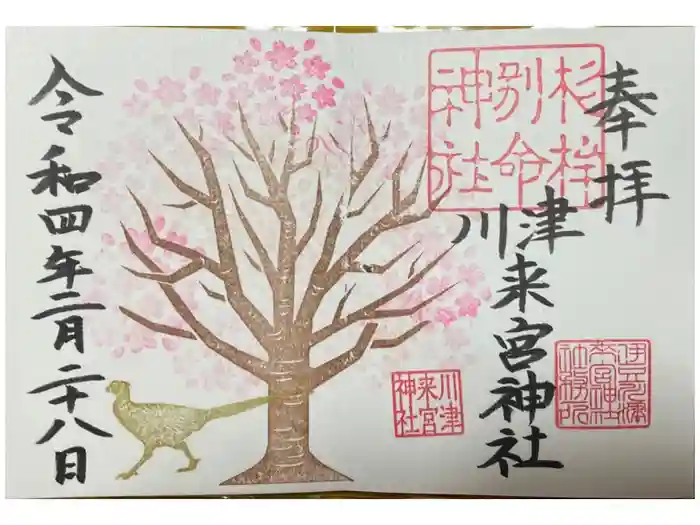 奉拝
杉桙
別命
神社
川津来宮神社
社務所
川津
来宮
神社
令和四年二月二十八日